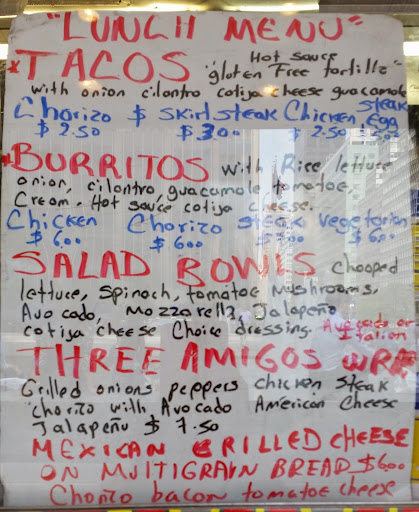 "LUNCH MENU"
*TACOS Hot sauce "gluten Free tortilla"
with onion cilantro cotija cheese guacamole
Chorizo $ Skirt steak Chicken steak Egg
$ 2.50 $ 300 $ 2.50
*BURRITOS with Rice lettuce
onion, cilantro, guacamole, tomatoe,
Cream. Hot sauce cotija cheese.
Chicken Chorizo steak vegetarian
$ 600 $ 600 $ 600
SALAD BOWLS chopped
lettuce, Spinach, tomatoe Mushrooms,
Avocado, Mozzarella, Jalapeño
cotija cheese Choice dressing. Avocado or
Italian
THREE AMIGOS WRA
Grilled onions peppers chicken steak
chorizo with, Avocado American Cheese
Jalapeñu $ 7.50
MEXICAN GRILLED CHEESE
ON MUITIGRAIN BREAD $600
Chorizo bacon tomatoe cheese